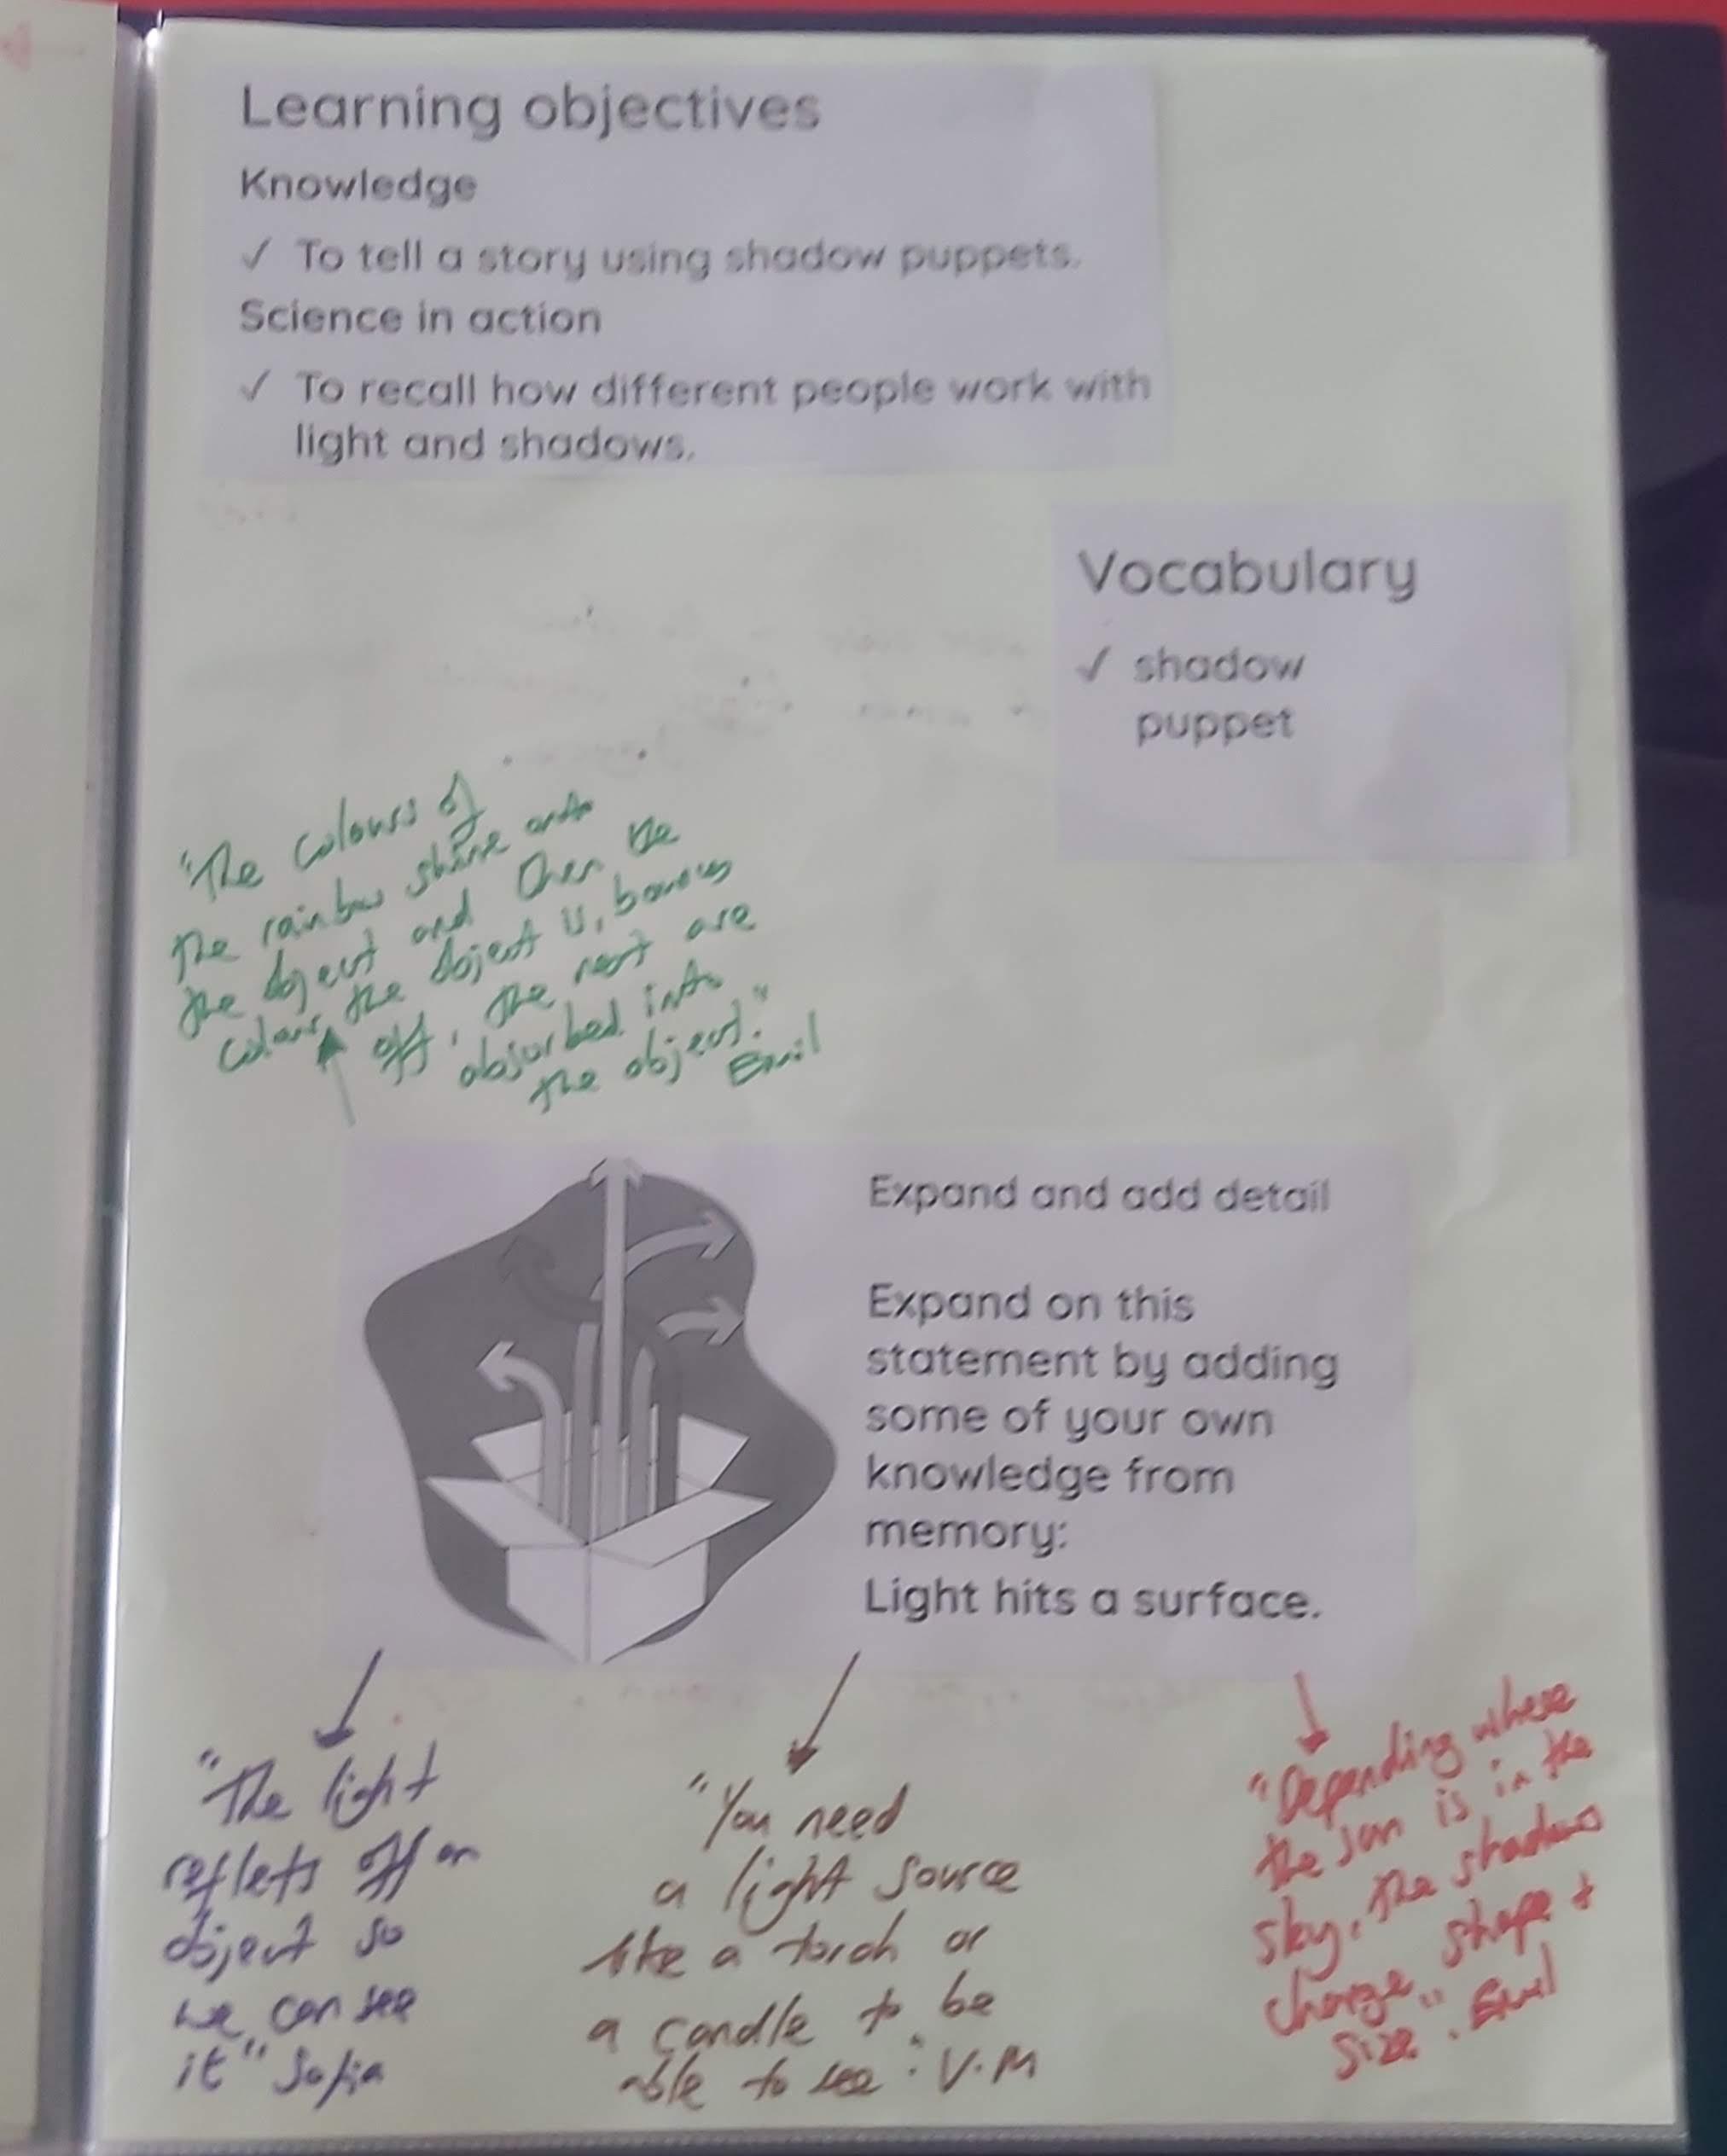 Learning objectives
Knowledge
✓ To tell a story using shadow puppets.
Science in action
✓ To recall how different people work with
light and shadows.
Vocabulary
✓ shadow
puppet
"The colours of
the rainbow shine onto
the object and then the
colour the object is, bounces
off, the rest are
absorbed into
the object."
Emil
Expand and add detail
Expand on this
statement by adding
some of your own
knowledge from
memory:
Light hits a surface.
"The light
reflets off an
object so
we can see
it" Sofia
"You need
a light source
like a torch or
a candle to be
able to see" V.M
"Depending where
the sun is in the
sky, the shadows
change shape +
size". Emil